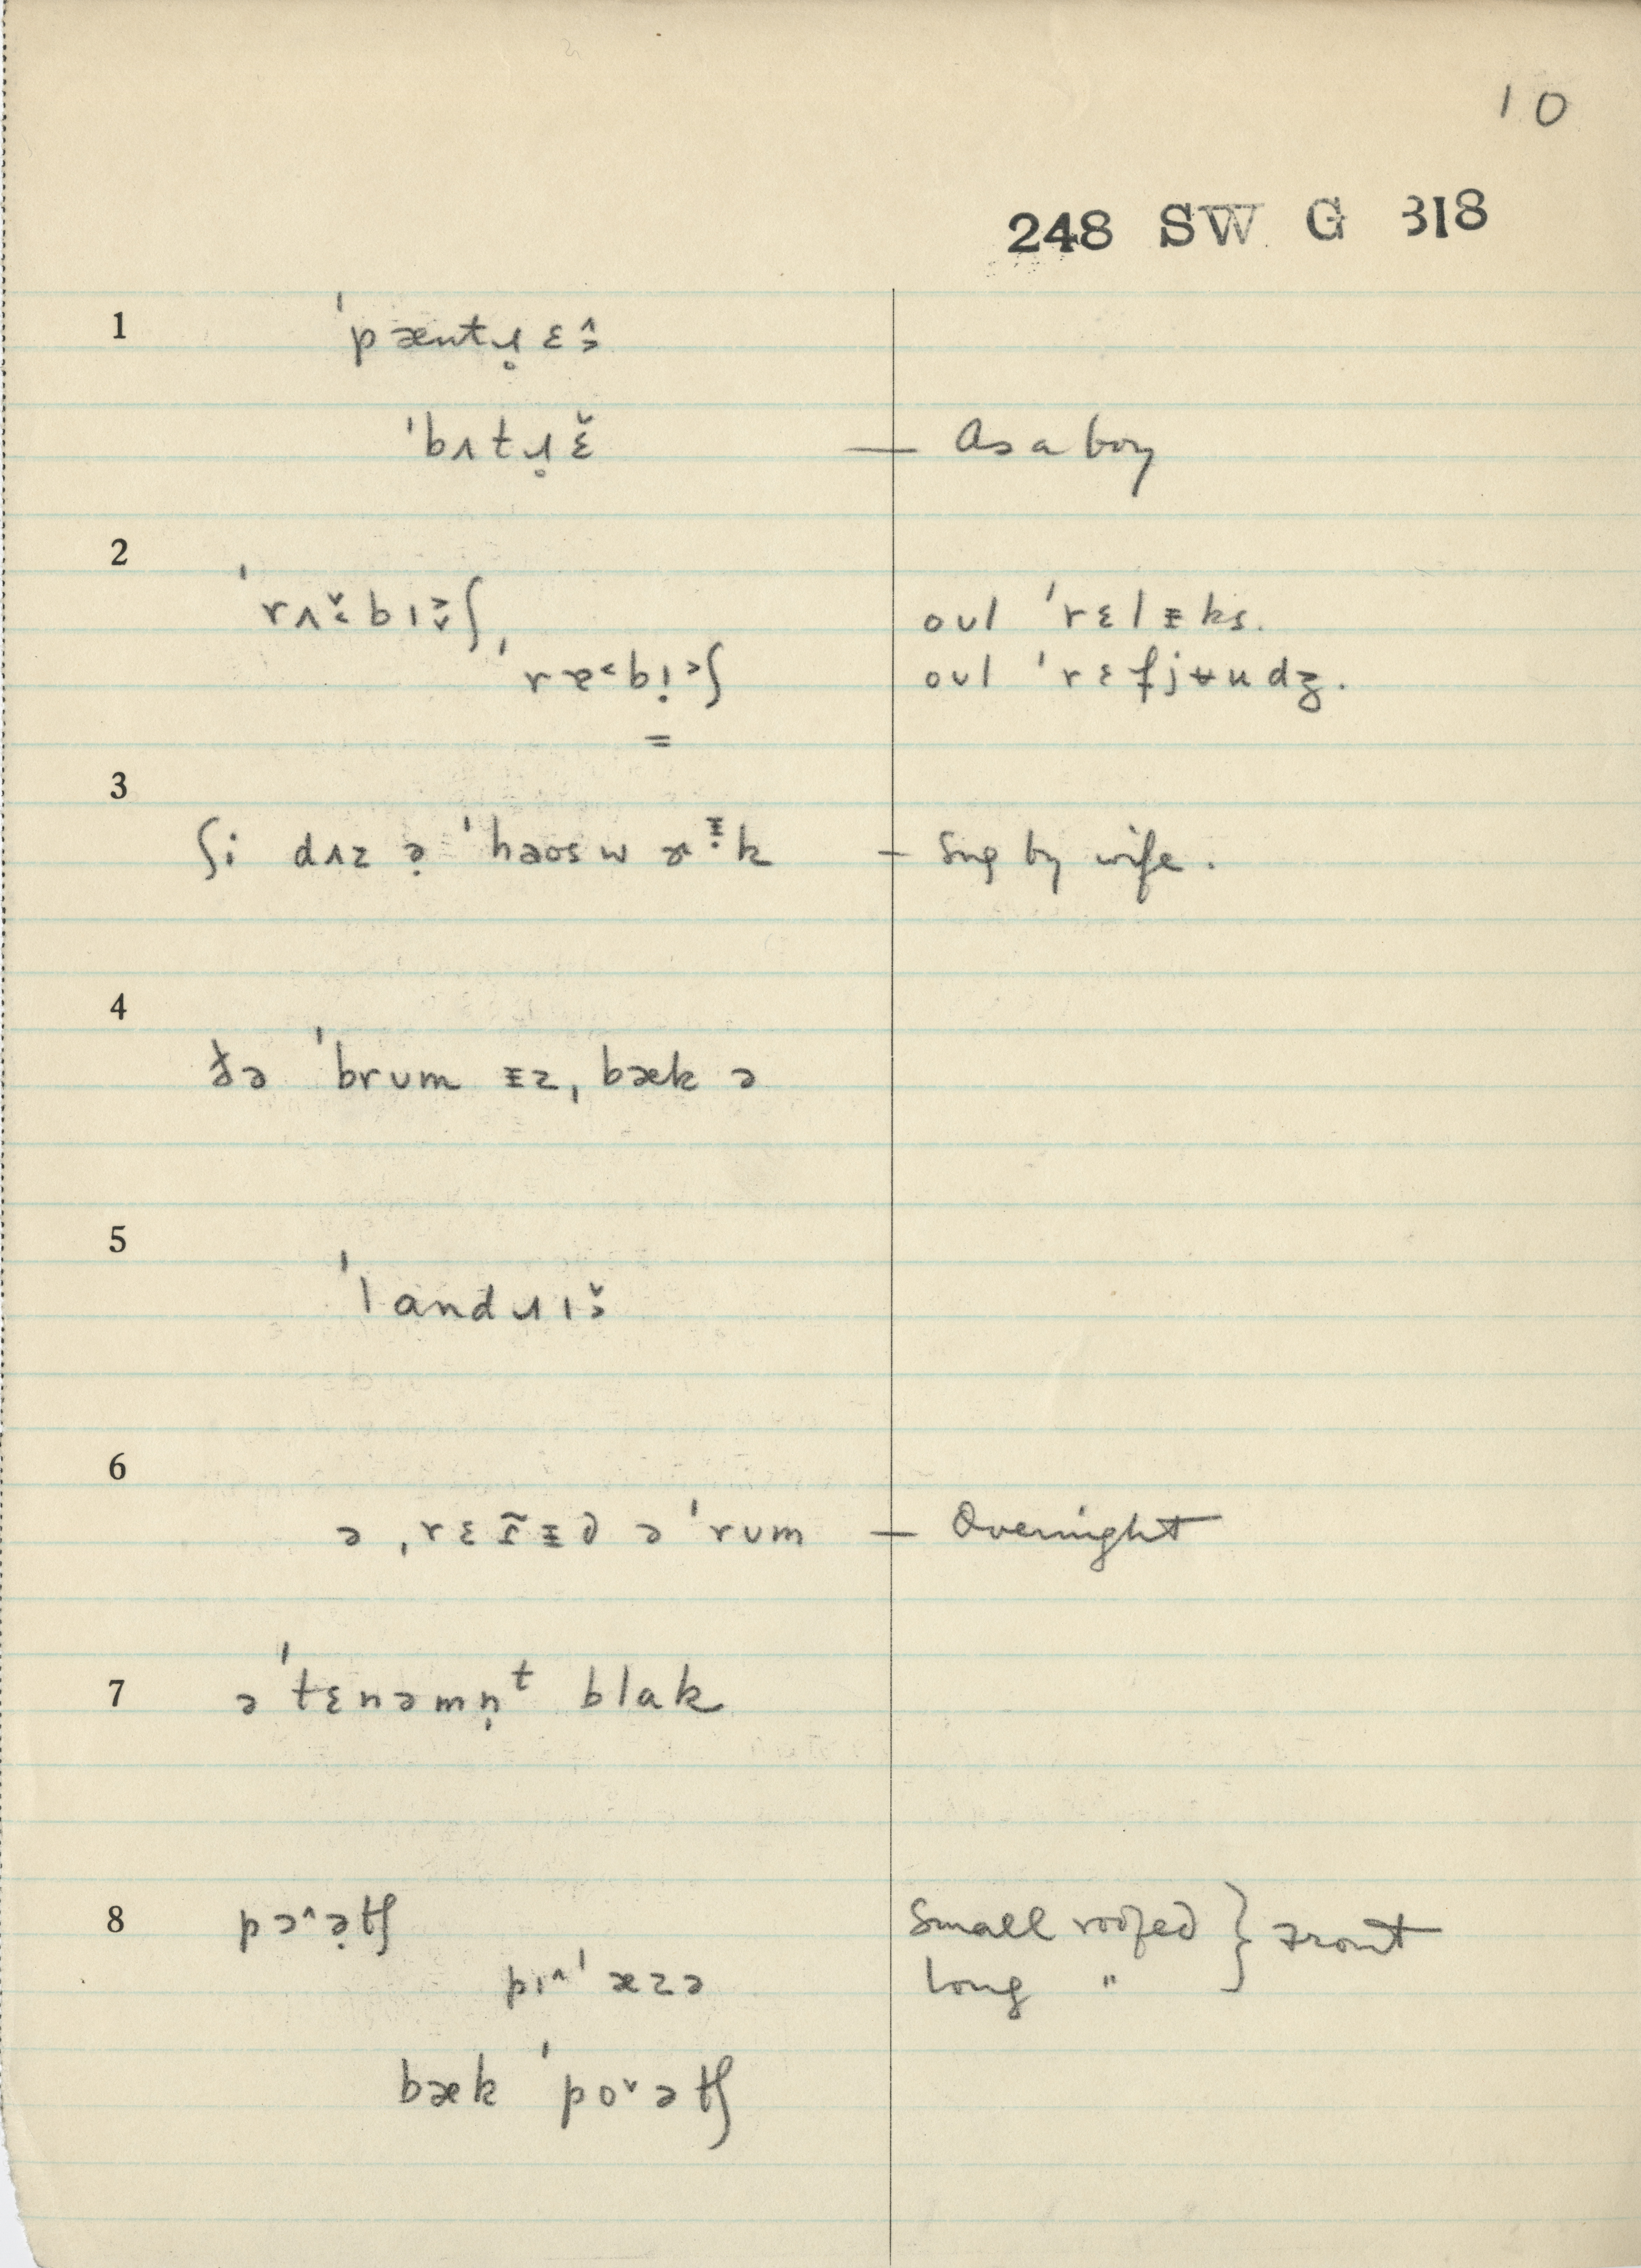 10
248 SW G 318
1 ˈpæntɹ̥ɛ̂˒
ˈbʌtɹ̥ɛ̌ — As a boy
2 ˈrʌ˂̌bɪ˃̬ʃ, oʊl ˈrɛlᵻks.
ˈrɐ˂bɪ̣˃ʃ oʊl ˈrɛfjʉudʒ.
=
3 ʃi dʌz ə̣ ˈhəʊswɚᵻ̣k — Sug by wife.
4 ðə ˈbrum ᵻz ˌbæk ə
5 ˈlandɹɪ˒̌
6 ə ˌrɛɾ̃ᵻd ə ˈrum — Overnight
7 ə ˈtɛnəmn̩ᵗ blak
8 pɔ^ə̣tʃ Small roofed } Front
pɪ^ˈæzə Long " }
bæk ˈpoˇətʃ